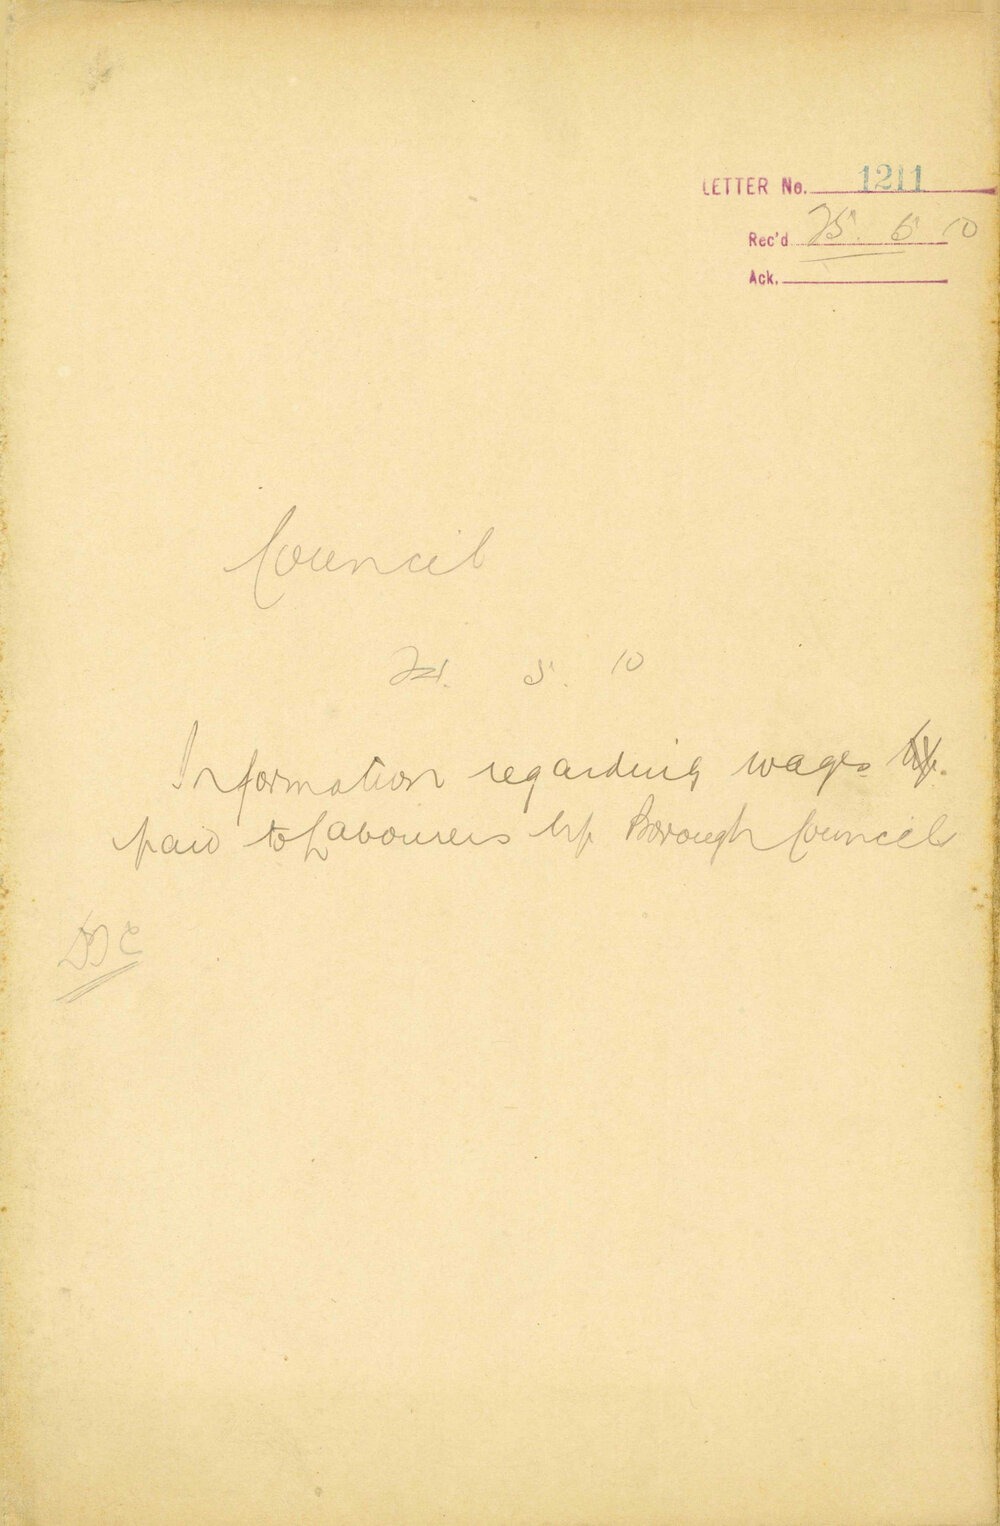 LETTER No. 1211
Rec'd 25. 5. 10
Ack.
Council
24. 5. 10
Information regarding wages by
paid to Labourers by Borough Council